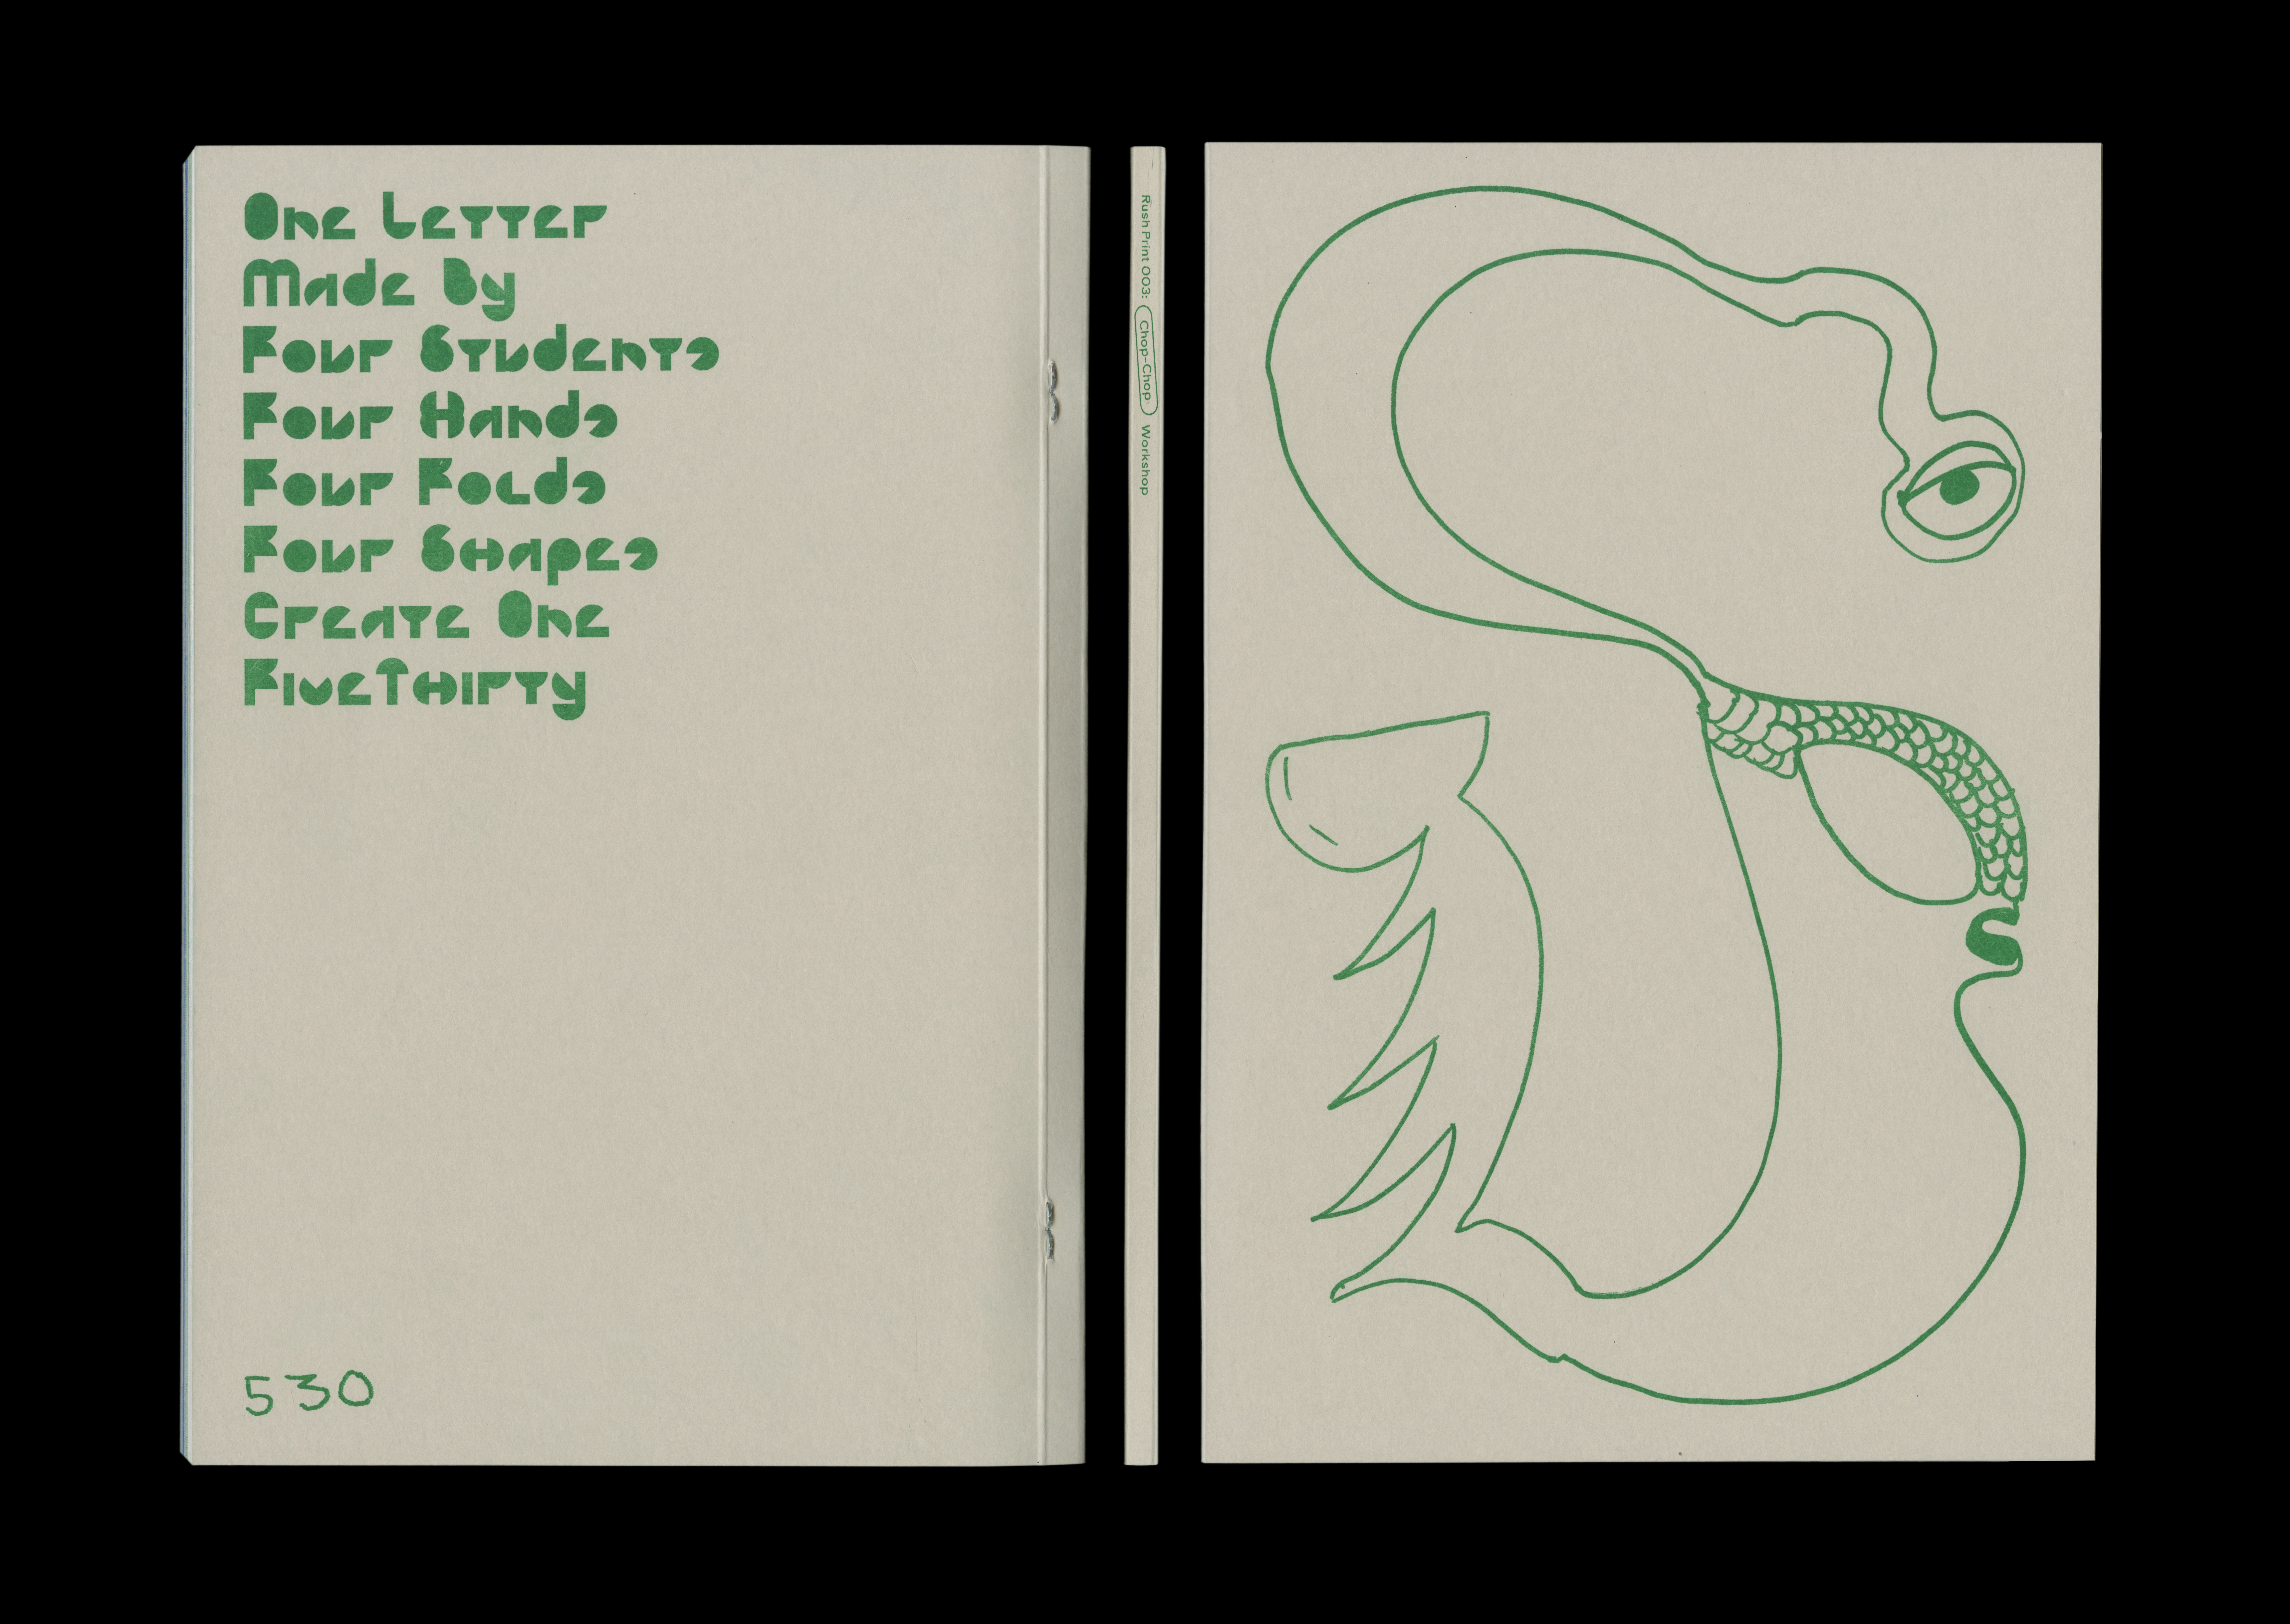 One Letter
Made By
Four Students
Four Hands
Four Folds
Four Shapes
Create One
FiveThirty
530
Rush Print 003: Chop-Chop Workshop
S